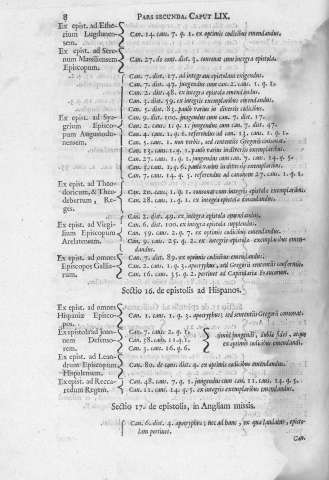 8 PARS SECUNDA. CAPUT LIX.
Ex epist. ad Ethe-
rium Lugdunen-
sem.
Can. 14. caus. 7. q. 1. ex optimis codicibus emendandus.
Ex epist. ad Sere-
num Massiliensem
Episcopum.
Can. 27. de cons. dist. 3. convenit cum integra epistola.
Can. 7. dist. 17. ad integram epistolam exigendus.
Can. 5. dist. 47. jungendus cum can. 2. caus. 1. q. 1.
Can. 2. dist. 48. ex integra epistola emendandus.
Can. 5. dist. 59. ex integris exemplaribus emendandus.
Can. 5. dist. 83. paulo varius in diversis codicibus.
Ex epist. ad Sy-
agrium Episco-
pum Augustodu-
nensem.
Can. 9. dist. 100. jungendus cum can. 7. dist. 17.
Can. 2. caus. 11. q. 1. jungendus cum can. 7. dist. 47.
Can. 4. caus. 1. q. 6. referendus ad can. 13. caus. 1. q. 1.
Can. 3. caus. 1. non verbis, sed sententiis Gregorii consonat.
Can. 13. caus. 1. q. 1. paulo varius in diversis exemplaribus.
Can. 27. caus. 1. q. 1. jungendus cum can. 7. caus. 14. q. 5.
Can. 2. caus. 1. q. 6. paulo varius in diversis exemplaribus.
Can. 7. caus. 14. q. 5. referendus ad canonem 27. caus. 1. q. 1.
Ex epist. ad Theo-
doricum, & Theo-
debertum, Re-
ges.
Can. 20. caus. 1. q. 1. convenit cum integris epistolæ exemplaribus.
Can. 28. caus. 1. q. 1. ex integra epistola emendandus.
Ex epist. ad Virgi-
lium Episcopum
Arelatensem.
Can. 2. dist. 49. ex integra epistola emendandus.
Can. 6. dist. 100. ex integra epistola supplendus.
Can. 39. caus. 2. q. 7. ex optimis codicibus emendandus.
Can. 9. caus. 25. q. 2. ex integris epistolæ exemplaribus emen-
dandus.
Ex epist. ad omnes
Episcopos Galliæ-
rum.
Can. 7. dist. 89. ex optimis codicibus emendandus.
Can. 2. caus. 1. q. 3. apocryphus, sed Gregorii sententiis conformis.
Can. 16. caus. 35. q. 2. pertinet ad Capitularia Francorum.
Sectio 16. de epistolis ad Hispanos.
Ex epist. ad omnes
Hispaniæ Episco-
pos.
Can. 1. caus. 1. q. 3. apocryphus; sed sententiis Gregorii consonat.
Ex epistolis ad Joan-
nem Defenso-
rem.
Can. 7. caus. 2. q. 1.
Can. 38. caus. 11. q. 1.
Can. 3. caus. 16. q. 6.
simul jungendi, dubiæ fidei, atque
ex optimis codicibus emendandi.
Ex epist. ad Lean-
drum Episcopum
Hispalensem.
Can. 80. de cons. dist. 4. ex optimis codicibus emendandus.
Ex epist. ad Recca-
redum Regem.
Can. 48. caus. 7. q. 1. jungendus cum can. 11. caus. 14. q. 5.
Can. 11. caus. 14. q. 5. ex integris exemplaribus emendandus.
Sectio 17. de epistolis, in Angliam missis.
Can. 6. dist. 4. apocryphus; nec ad hanc, ex qua laudatur, episto-
lam pertinet.
Can.